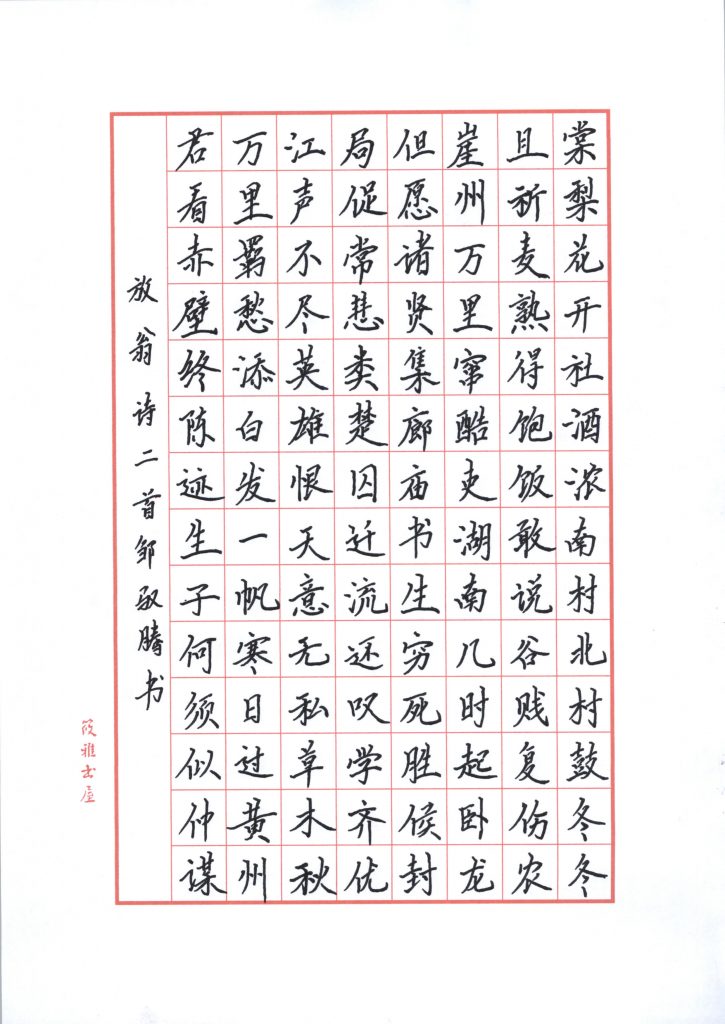 棠梨花开社酒浓南村北村鼓冬冬
且祈麦熟得饱饭敢说谷贱复伤农
崖州万里窜酷吏湖南几时起卧龙
但愿诸贤集廊庙书生穷死胜侯封
局促常悲类楚囚迁流还叹学齐优
江声不尽英雄恨天意无私草木秋
万里羁愁添白发一帆寒日过黄州
君看赤壁终陈迹生子何须似仲谋
放翁诗二首邹驭腾书
筱雅出屋